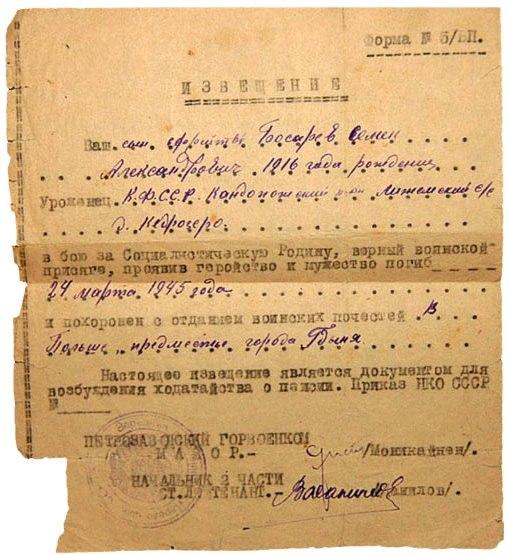 Форма № Б/БП.
ИЗВЕЩЕНИЕ
Ваш сын ефрейтор Босарев Семен
Александрович 1916 года рождения
Уроженец К.Ф.С.С.Р. Кандопожский р-он Лижемский с/с
д. Кедрозеро
в бою за Социалистическую Родину, верный воинской
присяге, проявив геройство и мужество погиб
24 марта 1945 года
и похоронен с отданием воинских почестей В
Польше, предместье города Гдыня
Настоящее извещение является документом для
возбуждения ходатайства о пенсии. Приказ НКО СССР
№
ПЕТРОЗАВОДСКИЙ ГОРВОЕНКОМ
МАЙОР.- /Моникайнен/.
НАЧАЛЬНИК 2 ЧАСТИ
СТ.ЛЕЙТЕНАНТ.-